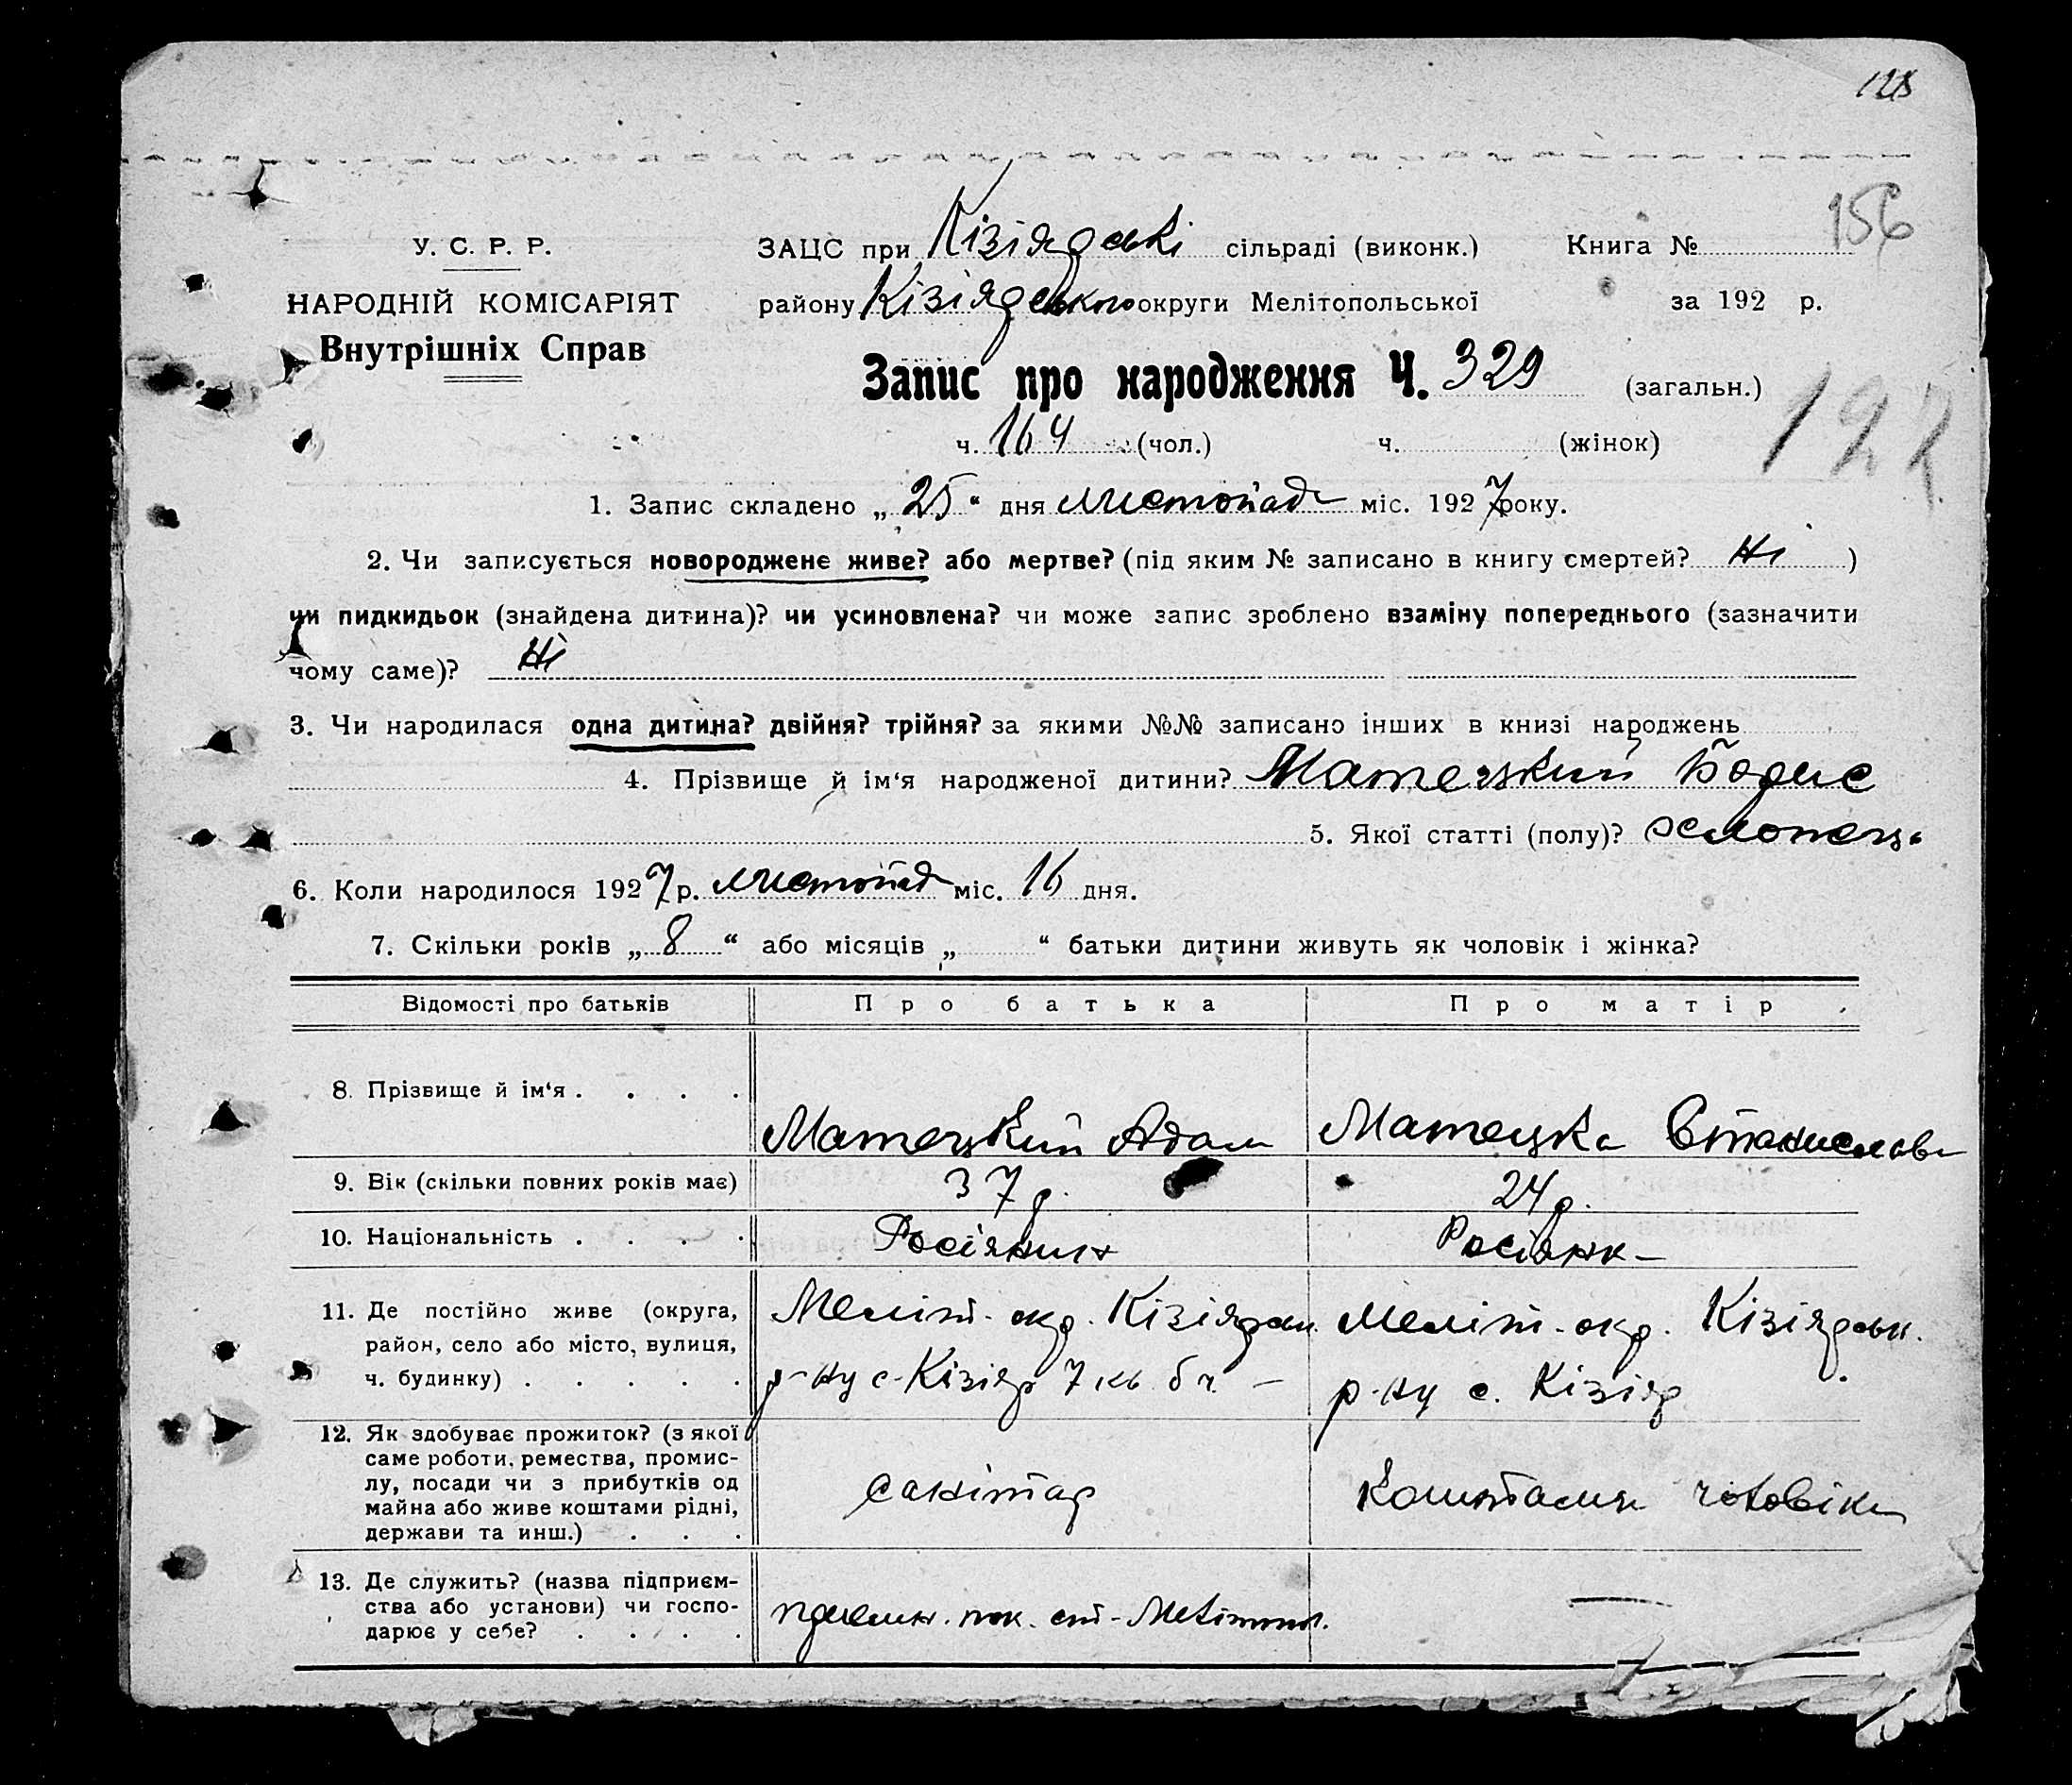 128
156
У. С. Р. Р.
НАРОДНІЙ КОМІСАРІЯТ
Внутрішніх Справ
ЗАЦС при Кізіярські сільраді (виконк.) Книга №
району Кізіярського округи Мелітопольської за 192 р.
Запис про народження Ч. 329 (загальн.)
122
ч. 164 (чол.) ч. (жінок)
1. Запис складено „ 25 “ дня листопада міс. 1927 року.
2. Чи записується новороджене живе? або мертве? (під яким № записано в книгу смертей? Ні )
чи пидкидьок (знайдена дитина)? чи усиновлена? чи може запис зроблено взаміну попереднього (зазначити
чому саме)? Ні
3. Чи народилася одна дитина? двійня? трійня? за якими №№ записано інших в книзі народжень
4. Прізвище й ім‘я народженої дитини? Матецький Борис
5. Якої статті (полу)? хлопець
6. Коли народилося 1927 р. листопад міс. 16 дня.
7. Скільки років „ 8 “ або місяців „ “ батьки дитини живуть як чоловік і жінка?
Відомості про батьків Про батька Про матір
8. Прізвище й ім‘я . . . . Матецький Адам Матецька Станислава
9. Вік (скільки повних років має) 37 р. 24 р.
10. Національність . . . . Росіянин Росіянка
11. Де постійно живе (округа, район, село або місто, вулиця, ч. будинку) . . . . .
Меліт. окр. Кізіярськ.
р-ну с. Кізіяр 7 кв. б ч. –
Меліт. окр. Кізіярськ.
р-ну с. Кізіяр
12. Як здобуває прожиток? (з якої
саме роботи, ремества, промис-
лу, посади чи з прибутків од
майна або живе коштами рідні,
держави та инш.) . . .
санітар
Коштами чоловіка
13. Де служить? (назва підприєм-
ства або установи) чи госпо-
дарює у себе? . . . .
приемн. пок. ст. Мелітопол. —